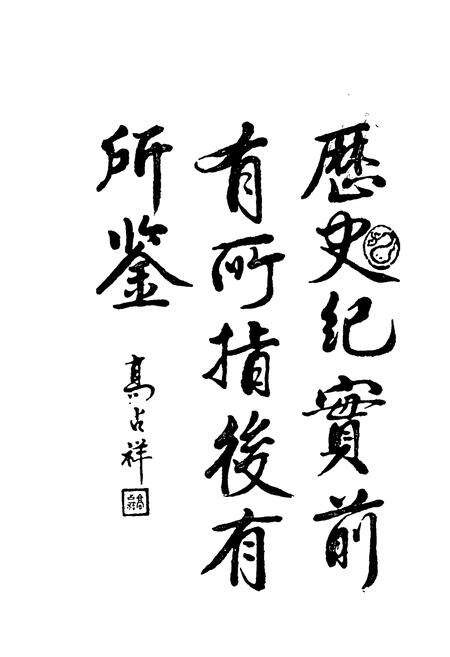 歷史纪實前
有所指後有
所鉴
高占祥